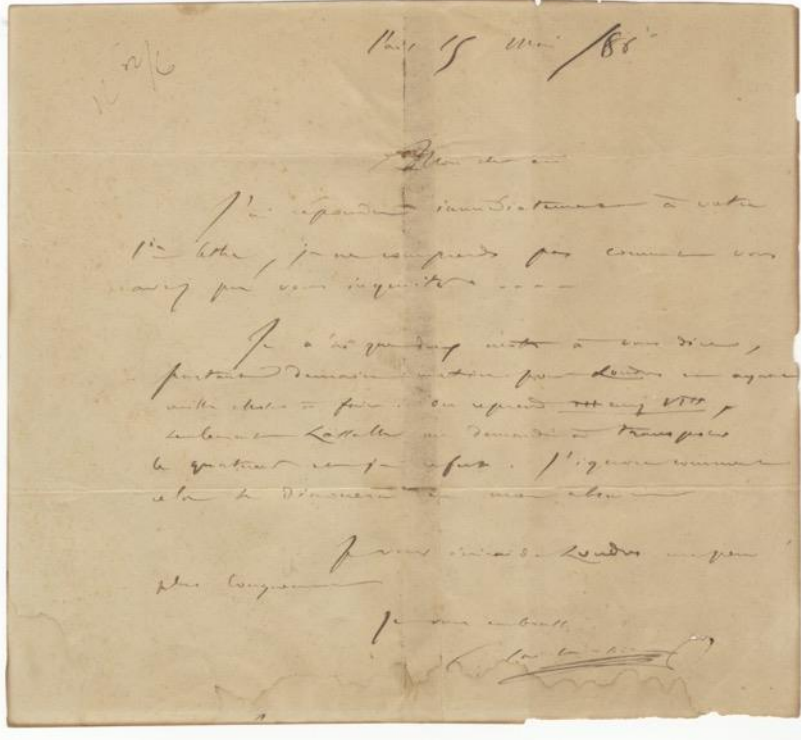 Paris 15 Mai /86
Mon cher ami
J'ai répondu immédiatement à votre
1re lettre, je ne comprends pas comment vous
avez pu vous inquiéter ----
Je n'ai que deux mots à vous dire,
partant demain matin pour Londres et ayant
mille choses à faire. On reprend Henry VIII,
seulement Lassalle me demande à transposer
le quatuor et je refuse. J'ignore comment
cela se dénouera en mon absence
Je vous écrirai de Londres un peu
plus longuement
Je vous embrasse